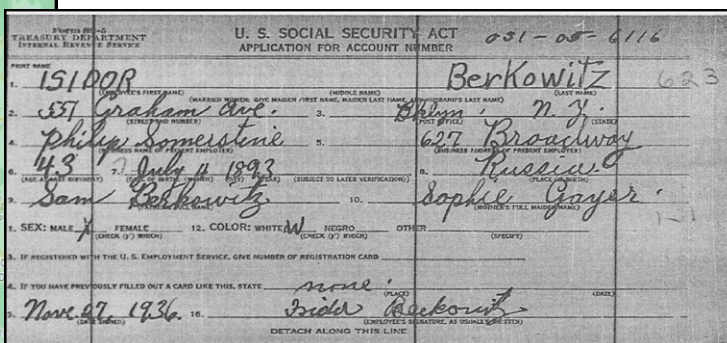 FORM SS-5
TREASURY DEPARTMENT
INTERNAL REVENUE SERVICE
U. S. SOCIAL SECURITY ACT
APPLICATION FOR ACCOUNT NUMBER
051-05-6116
PRINT NAME
1. ISIDOR Berkowitz 623
(EMPLOYEE'S FIRST NAME) (MIDDLE NAME) (LAST NAME)
(MARRIED WOMEN: GIVE MAIDEN FIRST NAME, MAIDEN LAST NAME, AND HUSBAND'S LAST NAME)
2. 557 Graham Ave. 3. Bklyn. N. Y.
(STREET AND NUMBER) (POST OFFICE) (STATE)
4. Philip Somerstine 5. 627 Broadway
(BUSINESS NAME OF PRESENT EMPLOYER) (BUSINESS ADDRESS OF PRESENT EMPLOYER)
6. 43 7. July 4 1893 8. Russia
(AGE AT LAST BIRTHDAY) (DATE OF BIRTH: (MONTH) (DAY) (YEAR) (SUBJECT TO LATER VERIFICATION)) (PLACE OF BIRTH)
9. Sam Berkowitz 10. Sophie Gayer
(FATHER'S FULL NAME) (MOTHER'S FULL MAIDEN NAME)
1-1
1. SEX: MALE X FEMALE 12. COLOR: WHITE W NEGRO OTHER
(CHECK (✓) WHICH) (CHECK (✓) WHICH) (SPECIFY)
3. IF REGISTERED WITH THE U. S. EMPLOYMENT SERVICE, GIVE NUMBER OF REGISTRATION CARD
4. IF YOU HAVE PREVIOUSLY FILLED OUT A CARD LIKE THIS, STATE none
(PLACE) (DATE)
5. Nov. 27, 1936. 16. Isidor Berkowitz
(DATE SIGNED) (EMPLOYEE'S SIGNATURE, AS USUALLY WRITTEN)
DETACH ALONG THIS LINE